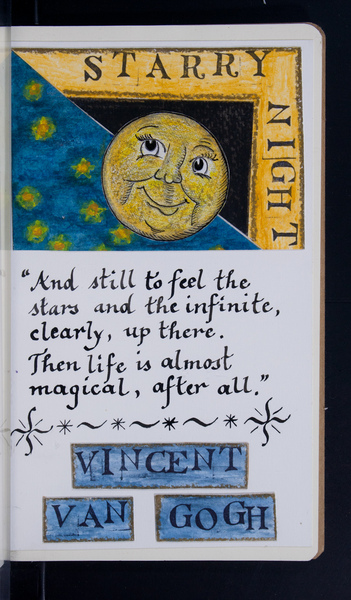 STARRY
NIGHT
“And still to feel the
stars and the infinite,
clearly, up there.
Then life is almost
magical, after all.”
VINCENT
VAN GOGH